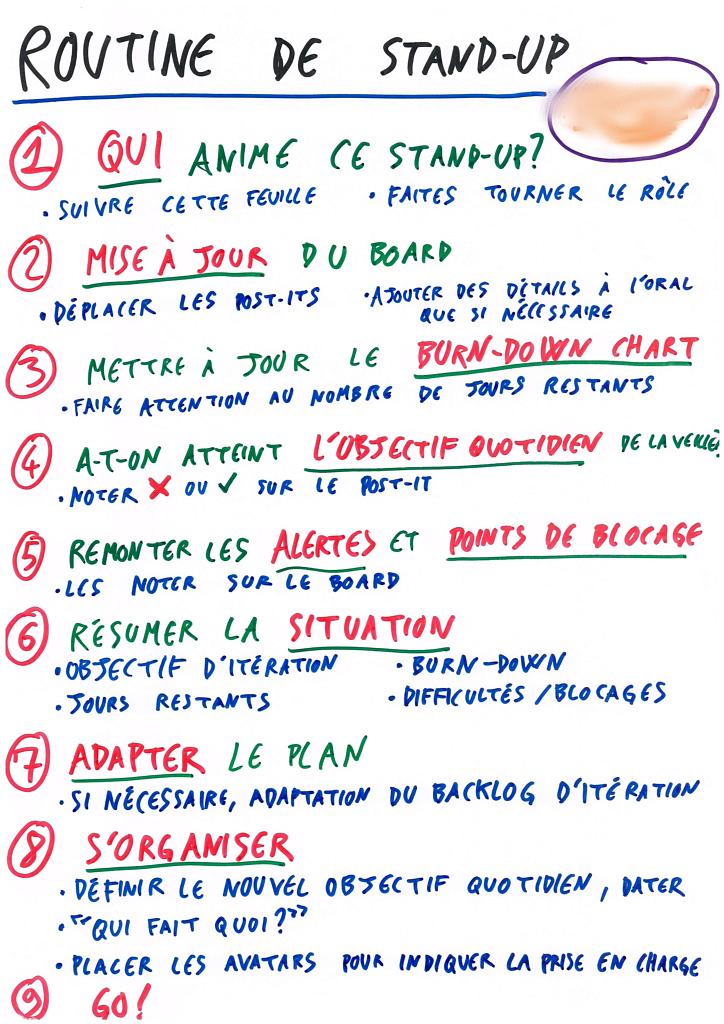 ROUTINE DE STAND-UP
1 QUI ANIME CE STAND-UP?
• SUIVRE CETTE FEUILLE • FAITES TOURNER LE RÔLE
2 MISE À JOUR DU BOARD
• DÉPLACER LES POST-ITS • AJOUTER DES DÉTAILS À L'ORAL
QUE SI NÉCESSAIRE
3 METTRE À JOUR LE BURN-DOWN CHART
• FAIRE ATTENTION AU NOMBRE DE JOURS RESTANTS
4 A-T-ON ATTEINT L'OBJECTIF QUOTIDIEN DE LA VEILLE?
• NOTER ✗ OU ✓ SUR LE POST-IT
5 REMONTER LES ALERTES ET POINTS DE BLOCAGE
• LES NOTER SUR LE BOARD
6 RÉSUMER LA SITUATION
• OBJECTIF D'ITÉRATION • BURN-DOWN
• JOURS RESTANTS • DIFFICULTÉS / BLOCAGES
7 ADAPTER LE PLAN
• SI NÉCESSAIRE, ADAPTATION DU BACKLOG D'ITÉRATION
8 S'ORGANISER
• DÉFINIR LE NOUVEL OBJECTIF QUOTIDIEN, DATER
• "QUI FAIT QUOI?"
• PLACER LES AVATARS POUR INDIQUER LA PRISE EN CHARGE
9 GO!